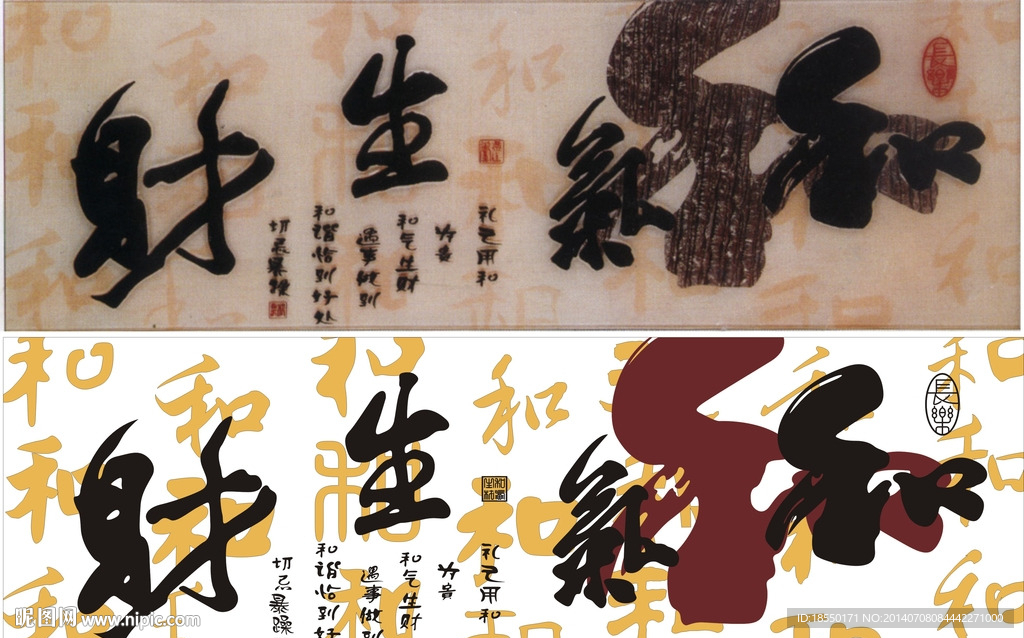 長樂
和氣生財
礼之用和
为贵
和气生财
遇事做到
和谐恰到好处
切忌暴躁
長樂
和氣生財
礼之用和
为贵
和气生财
遇事做到
和谐恰到好
切忌暴躁
昵图网 www.nipic.com
ID:18550171 NO:20140708084442271000